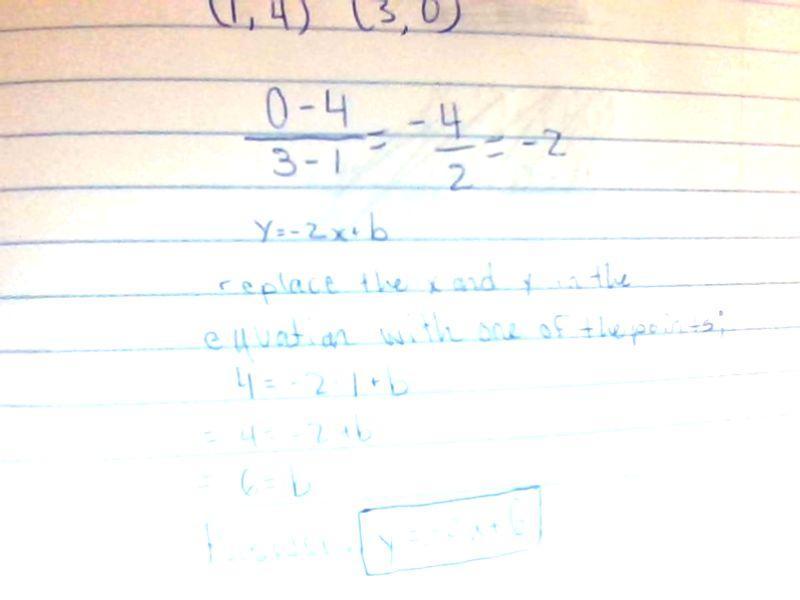 (1,4) (3,0)
0-4 / 3-1 = -4 / 2 = -2
y=-2x+b
replace the x and y in the
equation with one of the points;
4=-2·1+b
= 4=-2+b
= 6=b
Answer: y=-2x+6